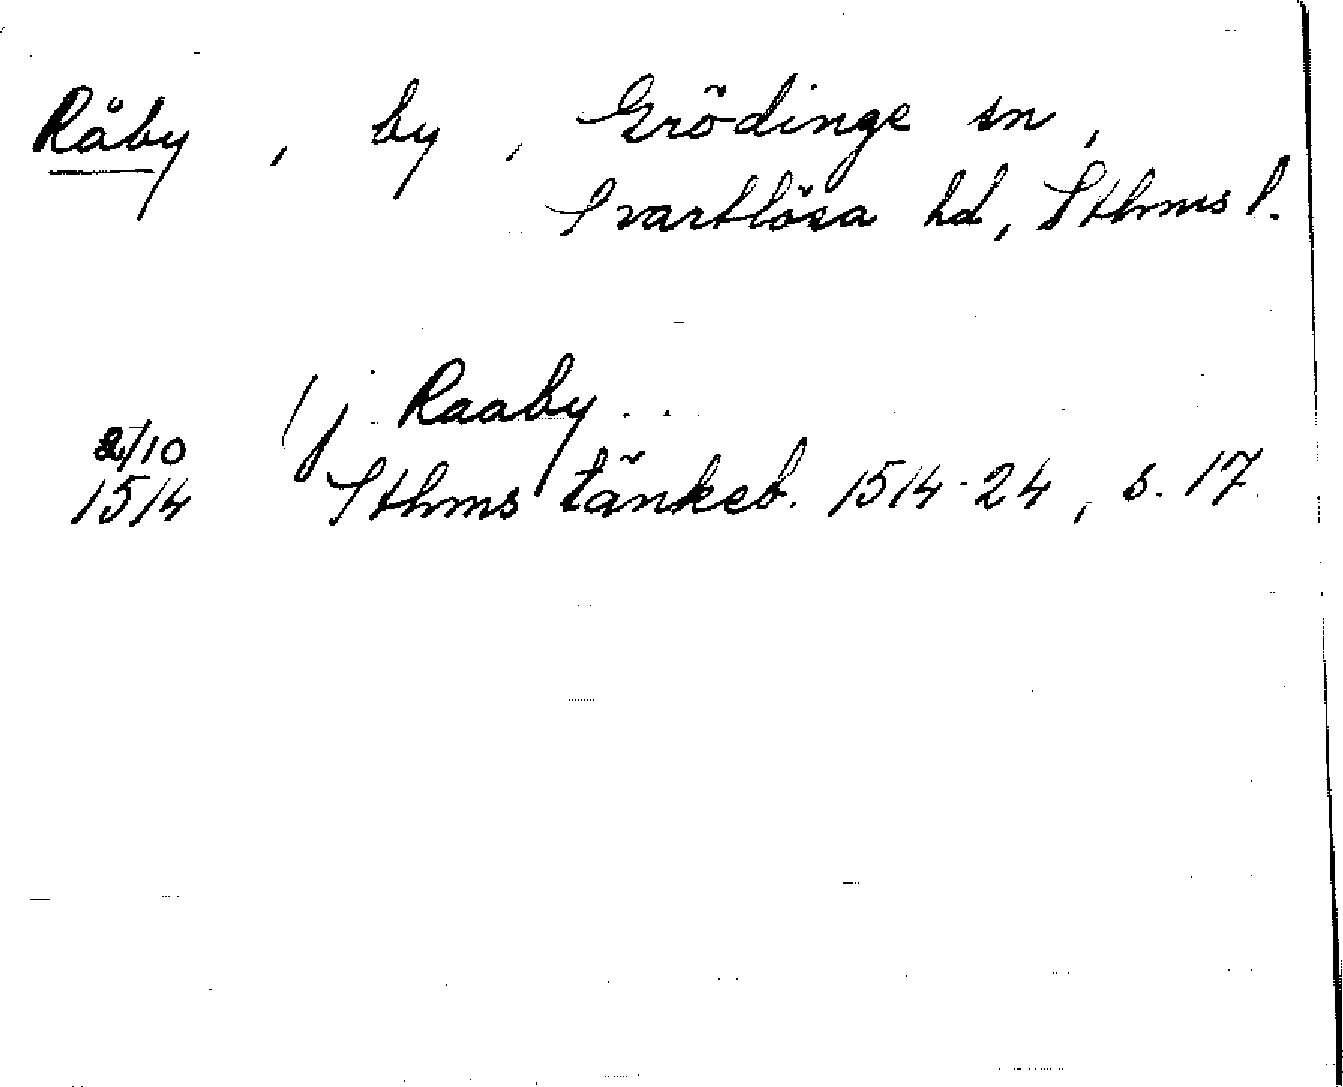 Råby, by, Grödinge sn,
Svartlösa hd, Sthms l.
(j Raaby...
2/10
1514 Sthms tänkeb. 1514-24, s. 17